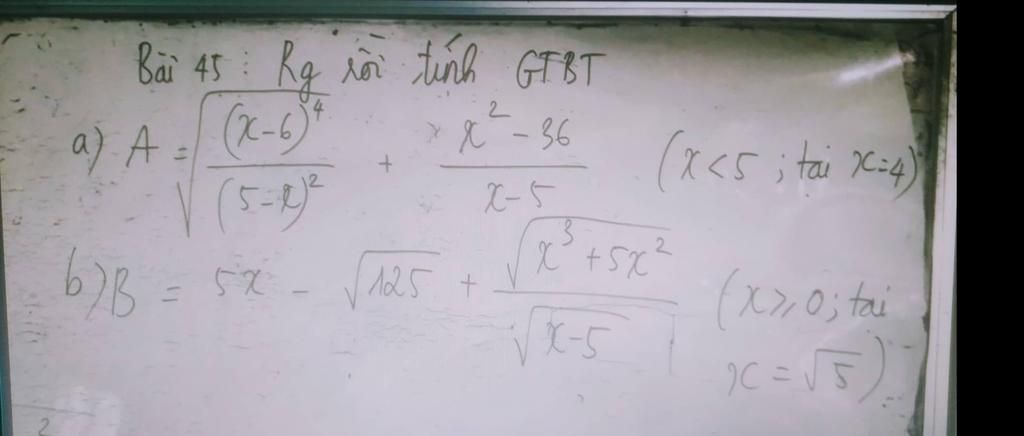 Bài 45 : Rg rồi tính GTBT
a) A = √((x-6)^4/(5-x)^2) + (x^2-36)/(x-5) (x<5 ; tại x=4)
b) B = 5x - √125 + √(x^3+5x^2)/√(x-5) (x⩾0; tại
x=√5)